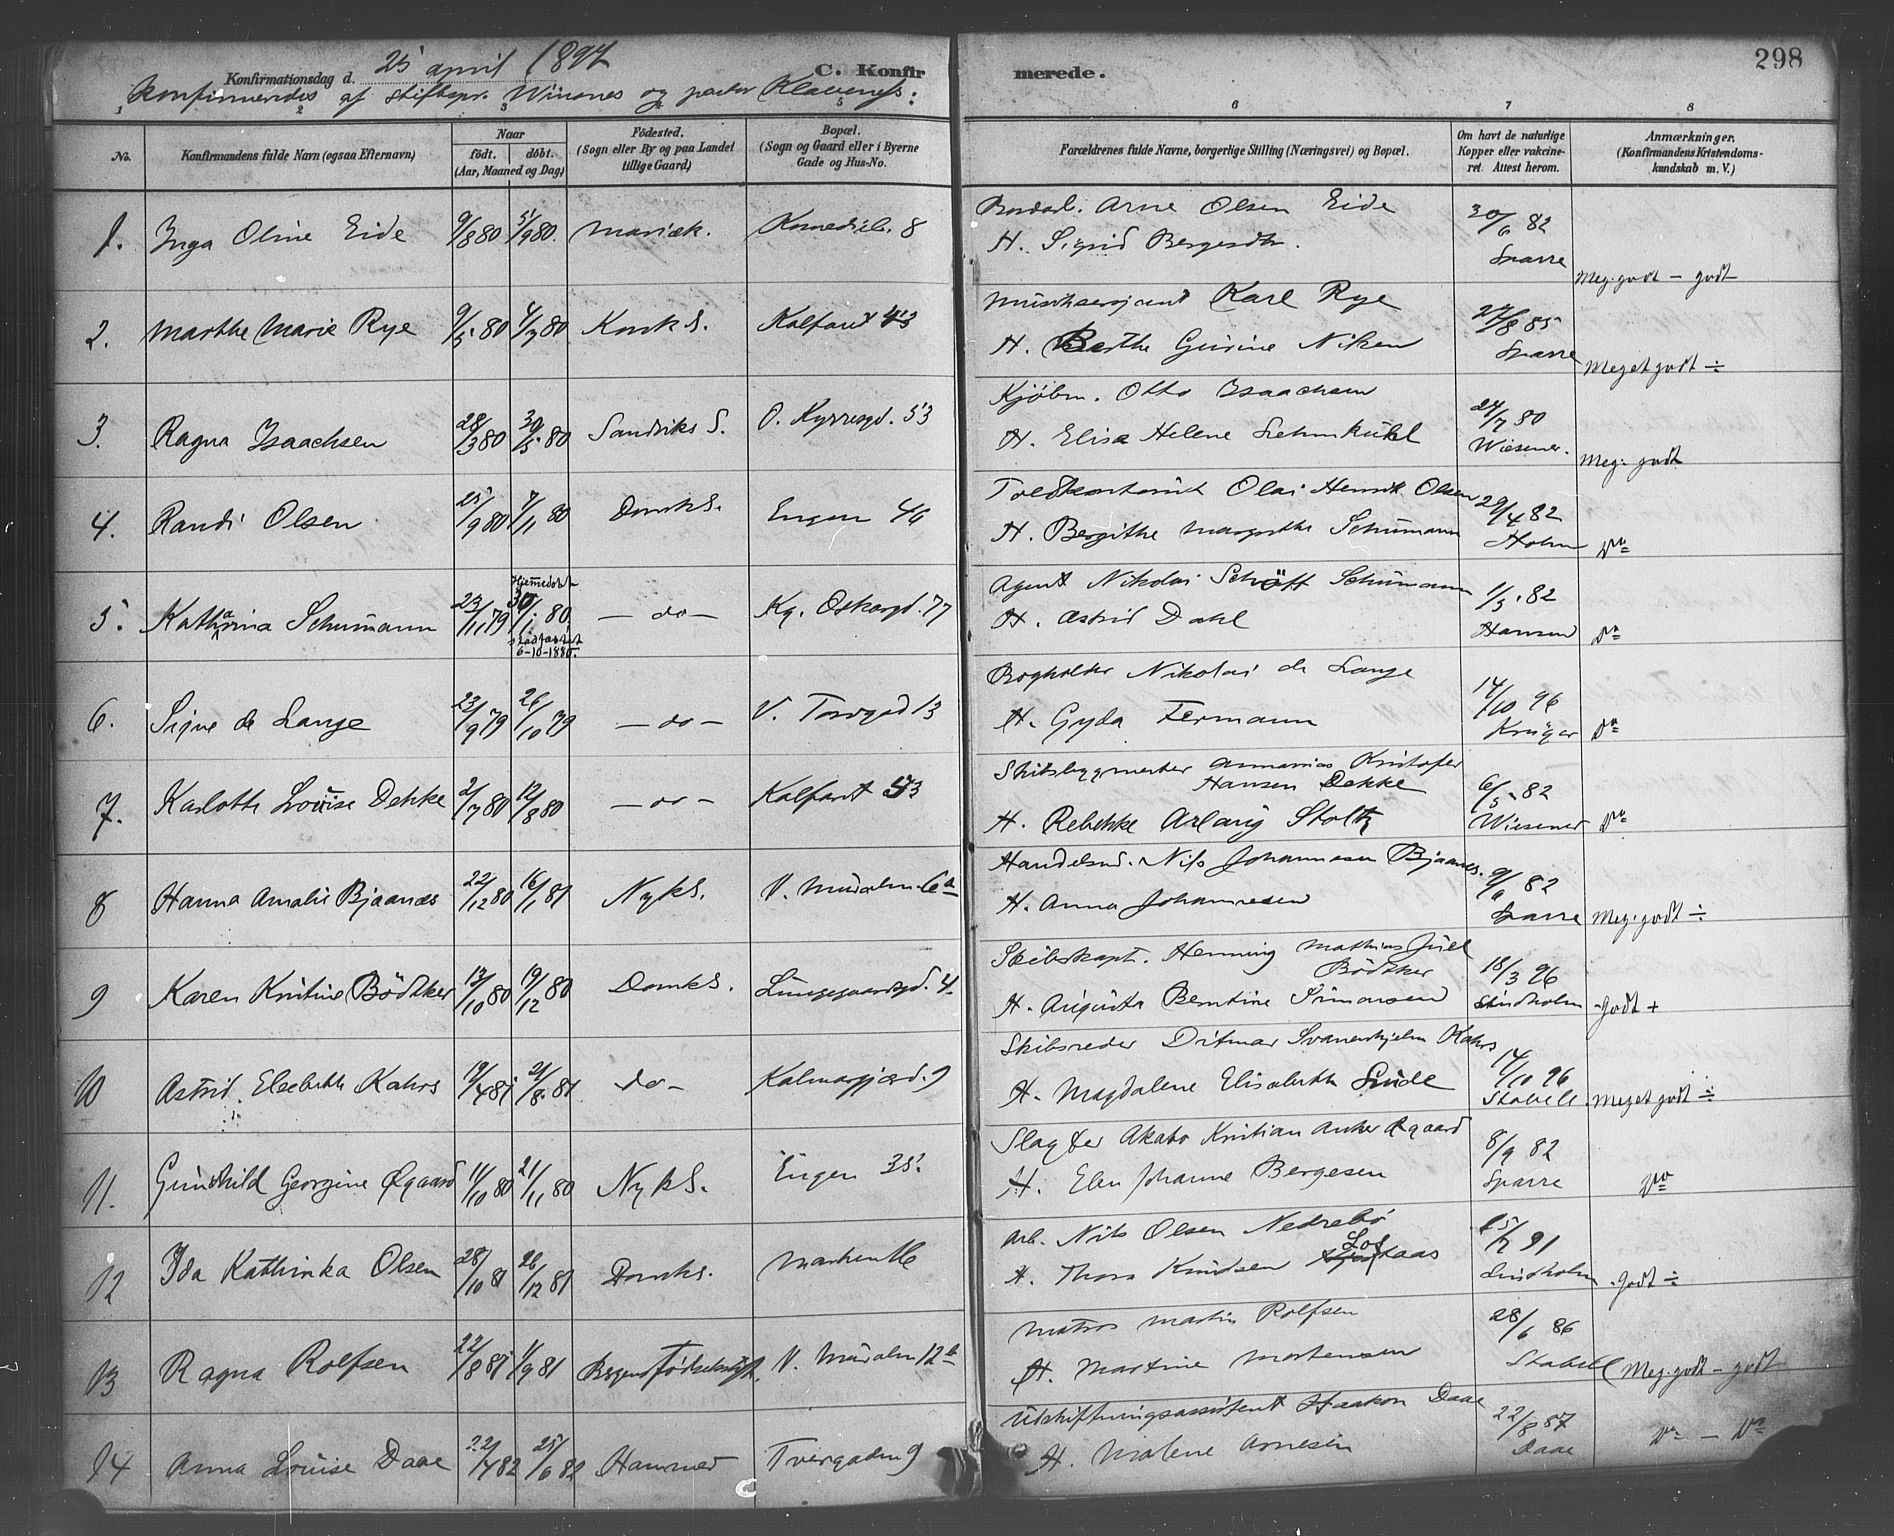 298
Konfirmationsdag d. 25 april 1897
C. Konfirmerede.
Konfirmeredes af stiftspr. og pastor Klaveness:
1 2 3 4 5 6 7 8
No.
Konfirmandens fulde Navn (ogsaa Efternavn)
Naar
født. døbt.
(Aar, Maaned og Dag)
Fødested.
(Sogn eller By og paa Landet
tillige Gaard)
Bopæl.
(Sogn og Gaard eller i Byerne
Gade og Hus-No.
Forældrenes fulde Navne, borgerlige Stilling (Næringsvei) og Bopæl.
Om havt de naturlige
Kopper eller vakcine-
ret. Attest herom.
Anmærkninger.
(Konfirmandens Kristendoms-
kundskab m. V.)
1. Inga Oline Eide 9/8 80 5/9 80. Mariæk. 8
Arne Olsen Eide 30/6 82
H. Sigrid Bergesdtr. Sparre Meg. godt – godt
2. Marthe Marie Rye 9/5 80 4/7 80 Korsk S. Kalfaret 43
Karl Rye 27/8 85
H. Berthe Gurine Sparre Meget godt ÷
3. Ragna Isaachsen 28/3 80 30/5 80 Sandviks S. O. Kyrresgd. 53
Kjøbm. Otto Isaachsen 24/7 80
H. Elisa Helene Lehmkuhl Wiesener. Meg. godt
4. Randi Olsen 25/9 80 7/11 80 Domks. Engen 46
Olai Henrik Olsen 29/4 82
H. Bergithe Margrethe Schumann Holm Do
5. Katharina Schumann 23/11 79 Hjemmedøbt 30/1 80, stadfæstet 6-10-1880. – do – Kg. Oskarsgd. 77
Agent Nikolai Schøtt Schumann 1/3 82
H. Astrid Dahl Hansen Do
6. Signe de Lange 23/9 79 26/10 79 – do – V. Torvgad 13
Bogholder Nikolai de Lange 14/10 96
H. Gyda Fermann Krüger Do
7. Karlotte Louise Dekke 2/7 80 12/8 80 – do – Kalfaret 53
Skibsbygmester Annanias Kristofer
Hansen Dekke 6/5 82
H. Rebekke Stoltz Wiesener Do
8 Hanna Amalie Bjaanæs 22/12 80 16/1 81 Nyks. V. Muralm. 6a
Handelsmd. Nils Johannesen Bjaanæs. 9/6 82
H. Anna Johannesen Sparre Meg. godt ÷
9 Karen Kristine Bödtker 13/10 80 19/12 80 Domks. Lungegaardsgd. 4
Skibskapt. Henning Mathias Juel
Bödtker 18/3 96
H. Augusta Berntine Simonsen Lindholm Godt +
10 Astrid Elsebeth Kahrs 19/4 81 21/8 81 do – 9
Skibsreder Ditmar Svanenhjelm Kahrs 14/10 96
H. Magdalene Elisabeth Stabell Meget godt ÷
11. Gunhild Georgine Øgaard 11/10 80 21/11 80 Nyks. Engen 35.
Slagter Kristian Anker Øgaard 8/9 82
H. Elen Johanne Bergesen Sparre Do
12 Ida Kathinka Olsen 28/10 81 26/12 81 Domks. Marken
Arb. Nils Olsen Nedrebø 91
H. Thora Knudsen Lindholm Godt ÷
13 Ragna Rolfsen 22/8 81 9/9 81 Bergens Fødselsstift. V. Muralm 12b
Matros Martin Rolfsen 28/6 86
H. Martine Mortensen Stabell Meg. godt – godt
14 Anna Louise Daae 22/4 82 25/6 82 Hammer Tvergaden 9
Udskiftningsassistent Haakon Daae 22/8 87
H. Malene Arnesen Daae Do – Do